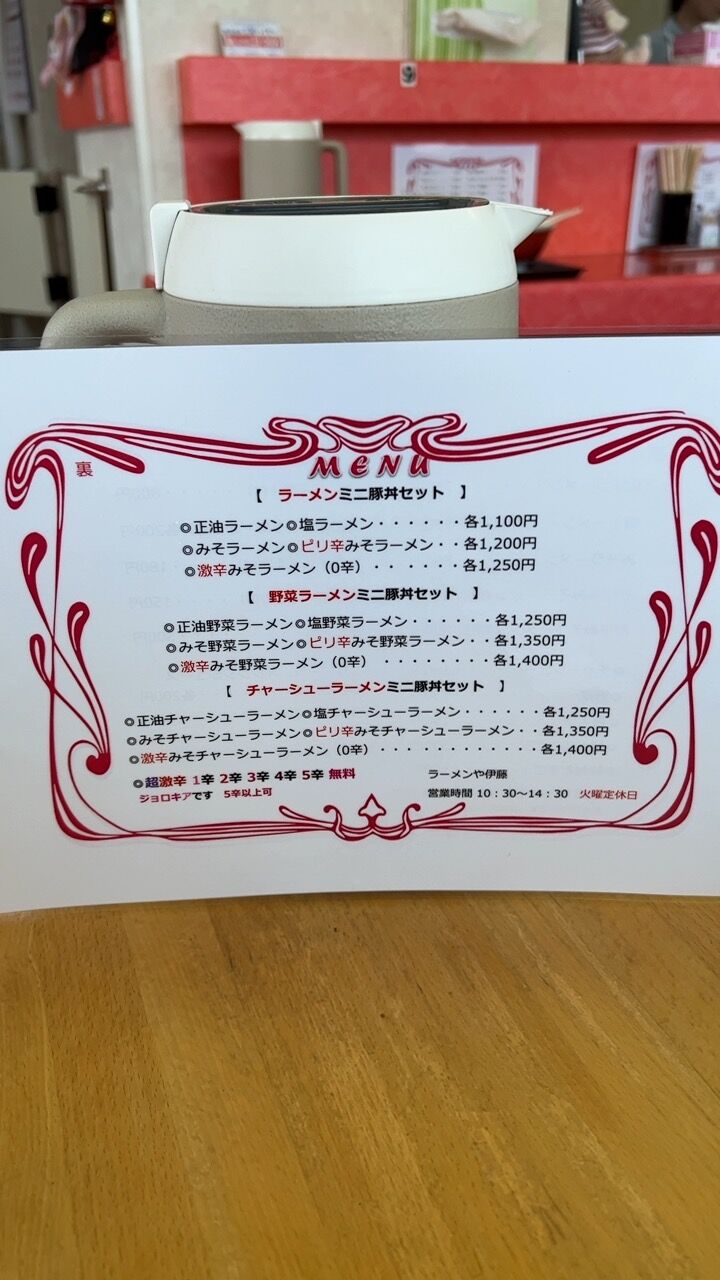 裏
MENU
【 ラーメンミニ豚丼セット 】
◎正油ラーメン◎塩ラーメン・・・・・・各1,100円
◎みそラーメン◎ピリ辛みそラーメン・・各1,200円
◎激辛みそラーメン（0辛）・・・・・・各1,250円
【 野菜ラーメンミニ豚丼セット 】
◎正油野菜ラーメン◎塩野菜ラーメン・・・・・・各1,250円
◎みそ野菜ラーメン◎ピリ辛みそ野菜ラーメン・・各1,350円
◎激辛みそ野菜ラーメン（0辛）・・・・・・・・各1,400円
【 チャーシューラーメンミニ豚丼セット 】
◎正油チャーシューラーメン◎塩チャーシューラーメン・・・・・・各1,250円
◎みそチャーシューラーメン◎ピリ辛みそチャーシューラーメン・・各1,350円
◎激辛みそチャーシューラーメン（0辛）・・・・・・・・・・・・各1,400円
◎超激辛 1辛 2辛 3辛 4辛 5辛 無料
ジョロキアです 5辛以上可
ラーメンや伊藤
営業時間 10：30～14：30 火曜定休日